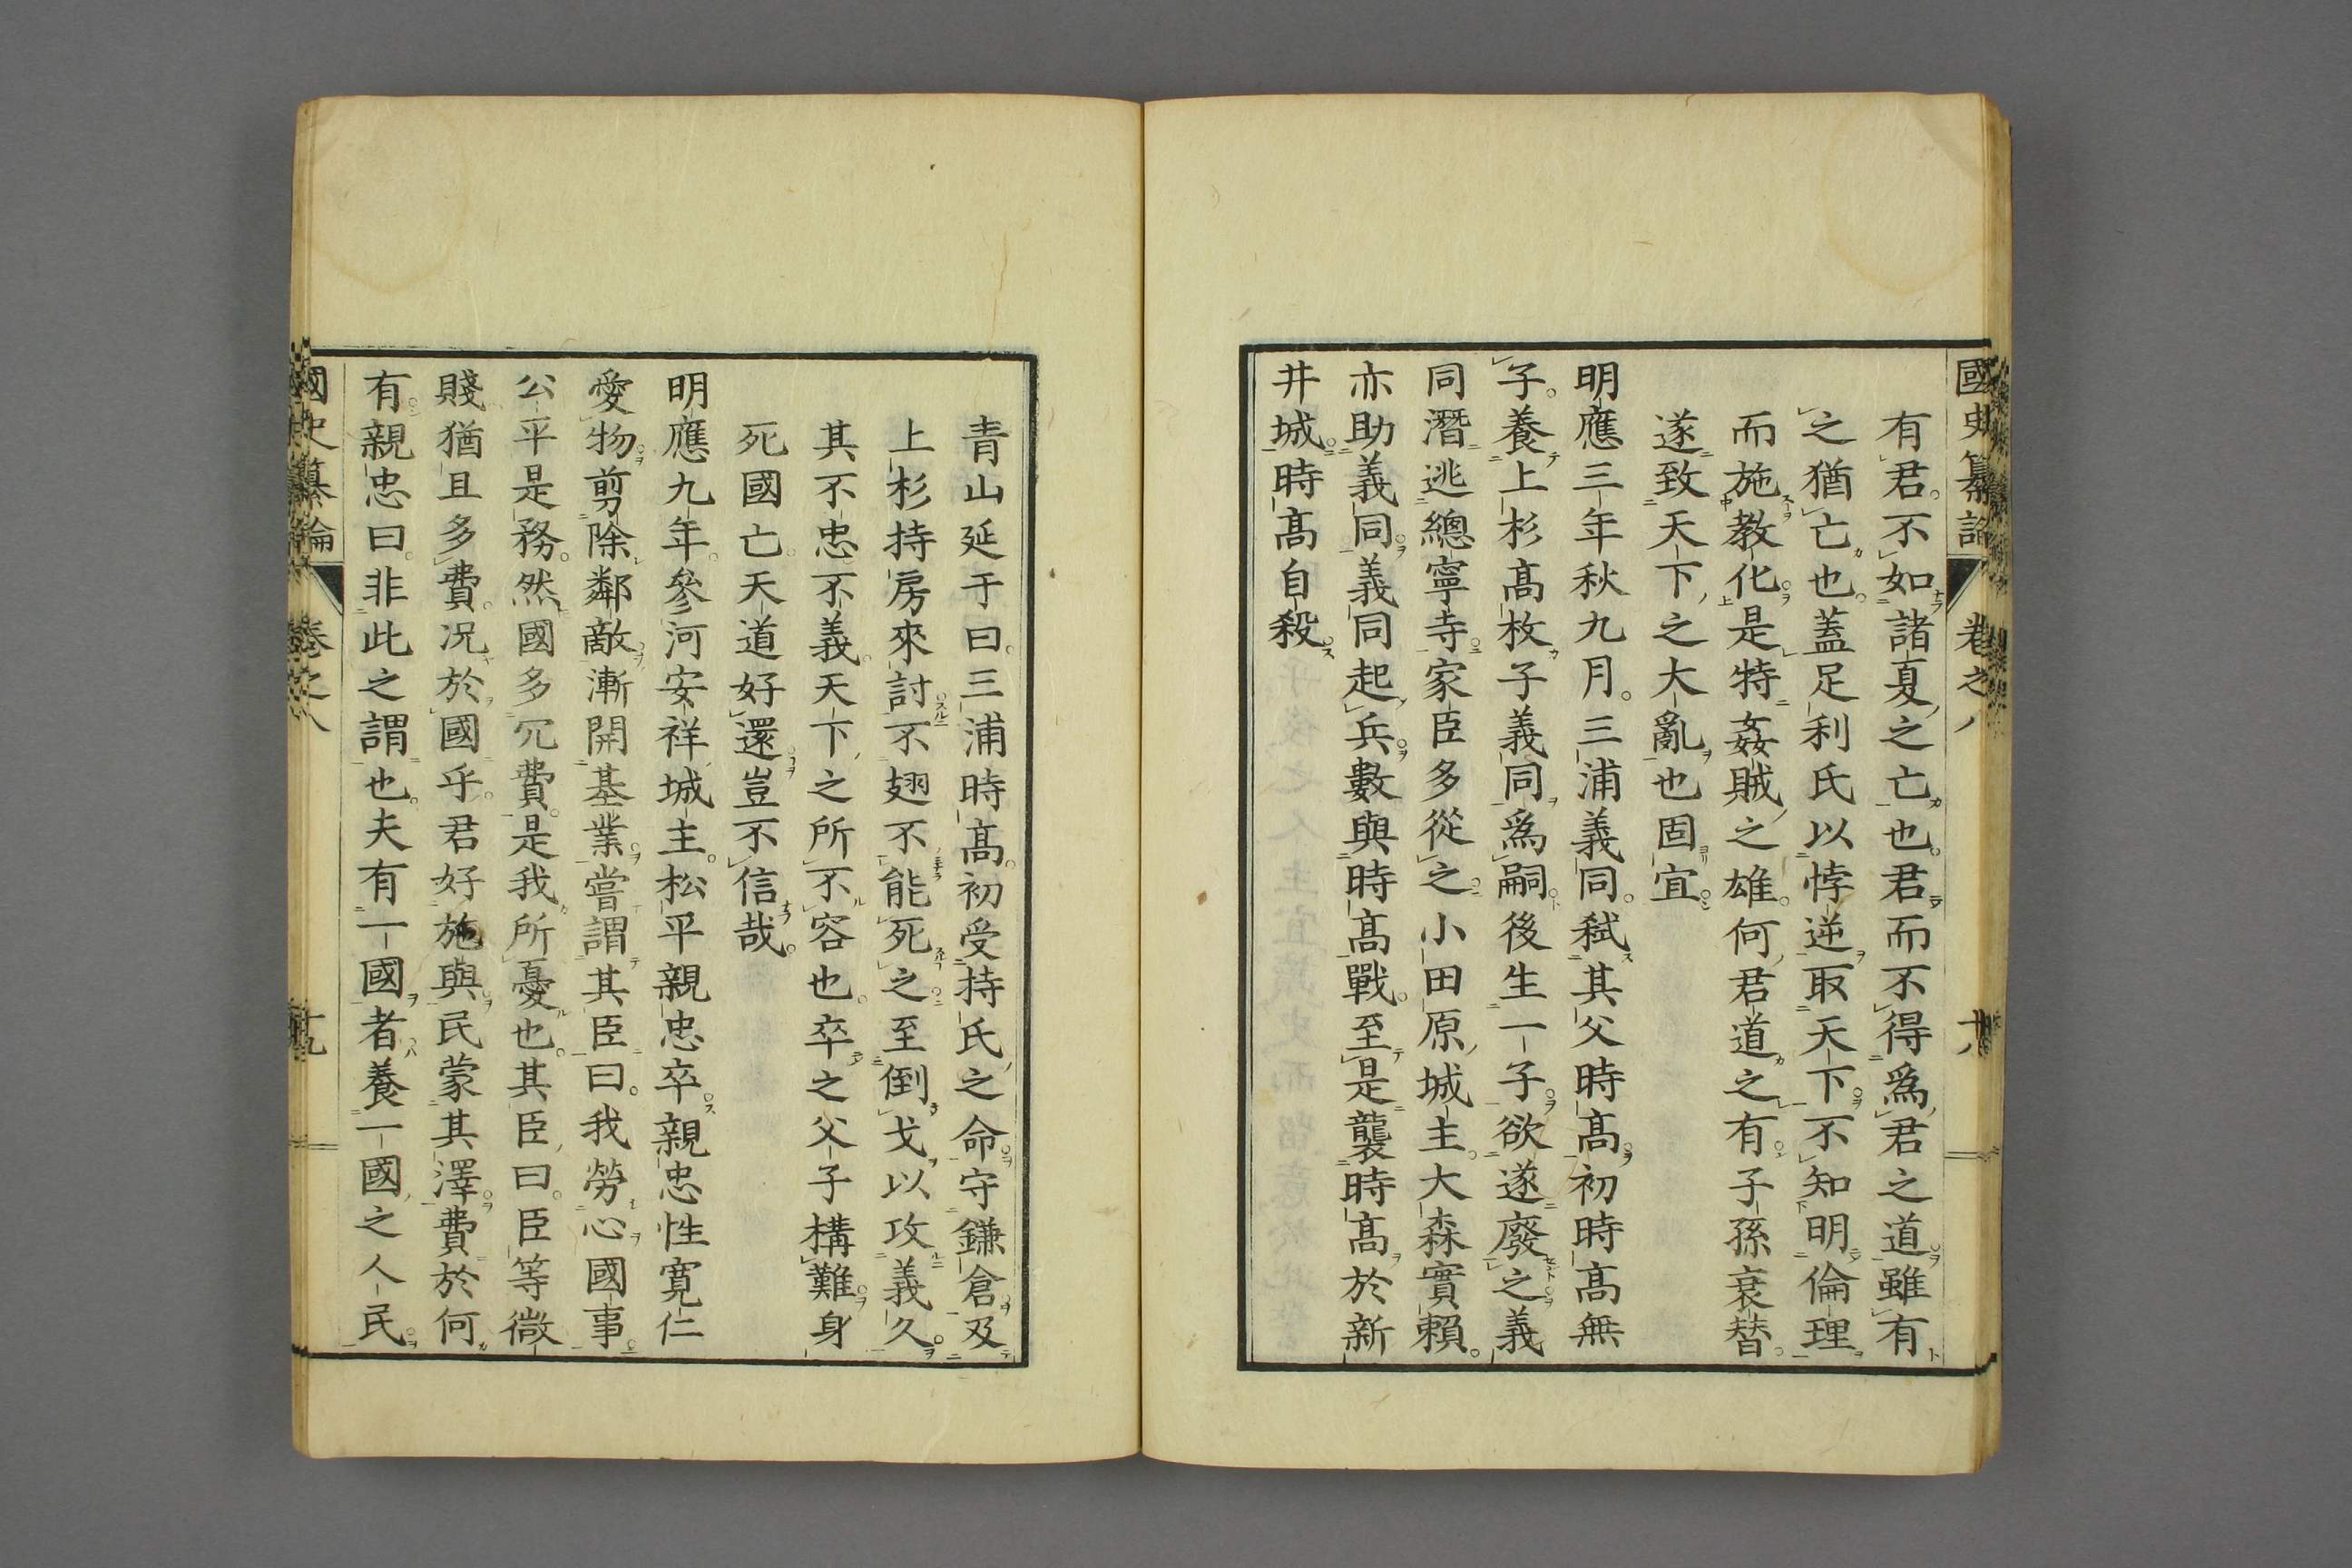 國史纂論 卷之八 十八
有君。不如諸夏之亡也。君而不得爲君之道雖有
之猶亡也。蓋足利氏以悖逆取天下不知明倫理
而施教化是特姦賊之雄。何君道之有。子孫衰替。
遂致天下之大亂也固宜。
明應三年秋九月。三浦義同。弑其父時高。初時高無
子。養上杉高枚子義同爲嗣。後生一子。欲遂廢之義
同潛逃總寧寺。家臣多從之。小田原城主。大森實賴。
亦助義同。義同起兵。數與時高戰。至是襲時高於新
井城。時高自殺。
青山延于曰。三浦時高。初受持氏之命。守鎌倉。及
上杉持房來討。不翅不能死之。至倒戈以攻義久。
其不忠不義。天下之所不容也。卒之父子構難。身
死國亡。天道好還。豈不信哉。
明應九年。參河安祥城主。松平親忠卒。親忠性寬仁
愛物。剪除鄰敵。漸開基業。嘗謂其臣曰。我勞心國事。
公平是務。然國多冗費。是我所憂也。其臣曰。臣等微
賤。猶且多費。況於國乎。君好施與。民蒙其澤。費於何
有。親忠曰。非此之謂也。夫有一國者。養一國之人民。
國史纂論 卷之八 十九